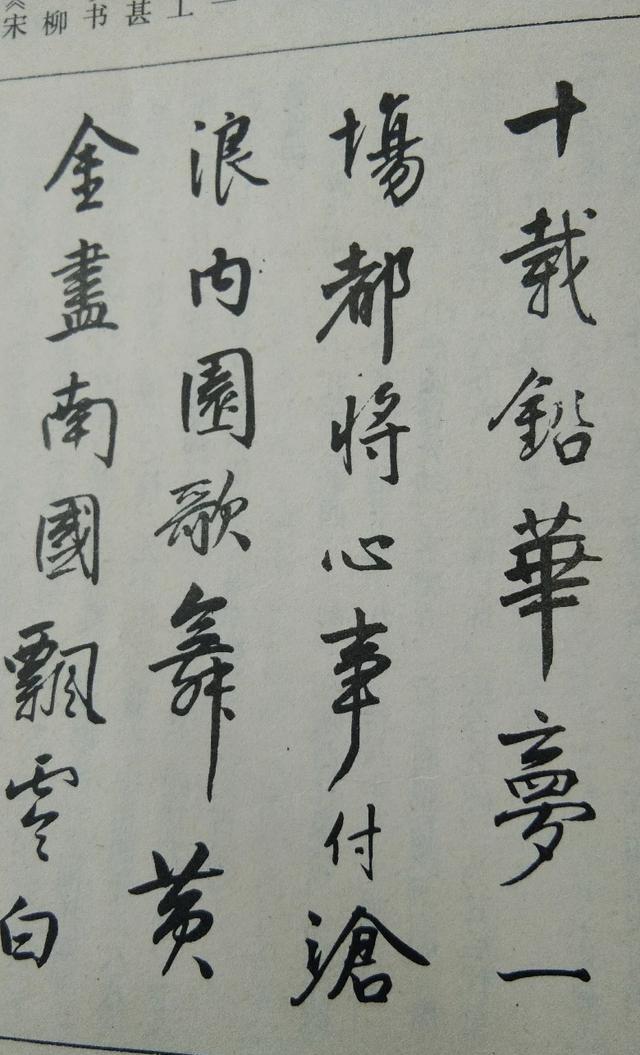 宋柳书甚
十載鉛華夢一
場都將心事付滄
浪内園歌舞黄
金盡南國飄零白